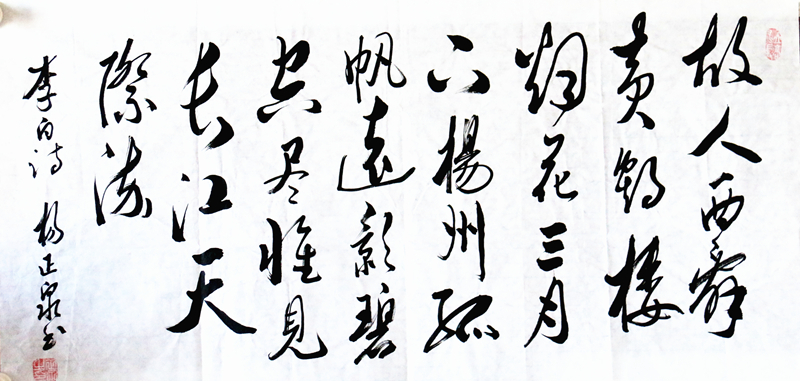 故人西辞
黄鹤楼
烟花三月
下楊州孤
帆遠影碧
空尽惟見
长江天
際流
李白诗 杨正泉书